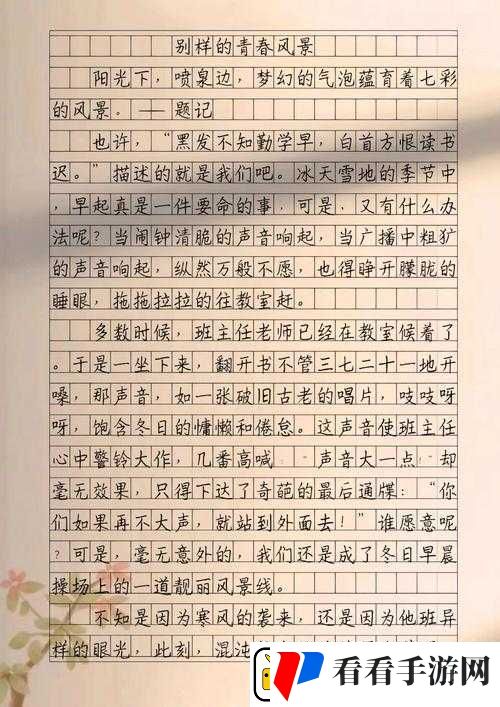 别样的青春风景
阳光下，喷泉边，梦幻的气泡蕴育着七彩
的风景。——题记
也许，“黑发不知勤学早，白首方恨读书
迟。”描述的就是我们吧。冰天雪地的季节中
，早起真是一件要命的事，可是，又有什么办
法呢？当闹钟清脆的声音响起，当广播中粗犷
的声音响起，纵然万般不愿，也得睁开朦胧的
睡眼，拖拖拉拉的往教室赶。
多数时候，班主任老师已经在教室候着了
。于是一坐下来，翻开书不管三七二十一地开
嗓，那声音，如一张破旧古老的唱片，吱吱呀
呀，饱含冬日的慵懒和倦怠。这声音使班主任
心中警铃大作，几番高喊 声音大一点 却
毫无效果，只得下达了奇葩的最后通牒：“你
们如果再不大声，就站到外面去！”谁愿意呢
？可是，毫无意外的，我们还是成了冬日早晨
操场上的一道靓丽风景线。
不知是因为寒风的袭来，还是因为他班异
样的眼光，此刻，混沌
看看手游网